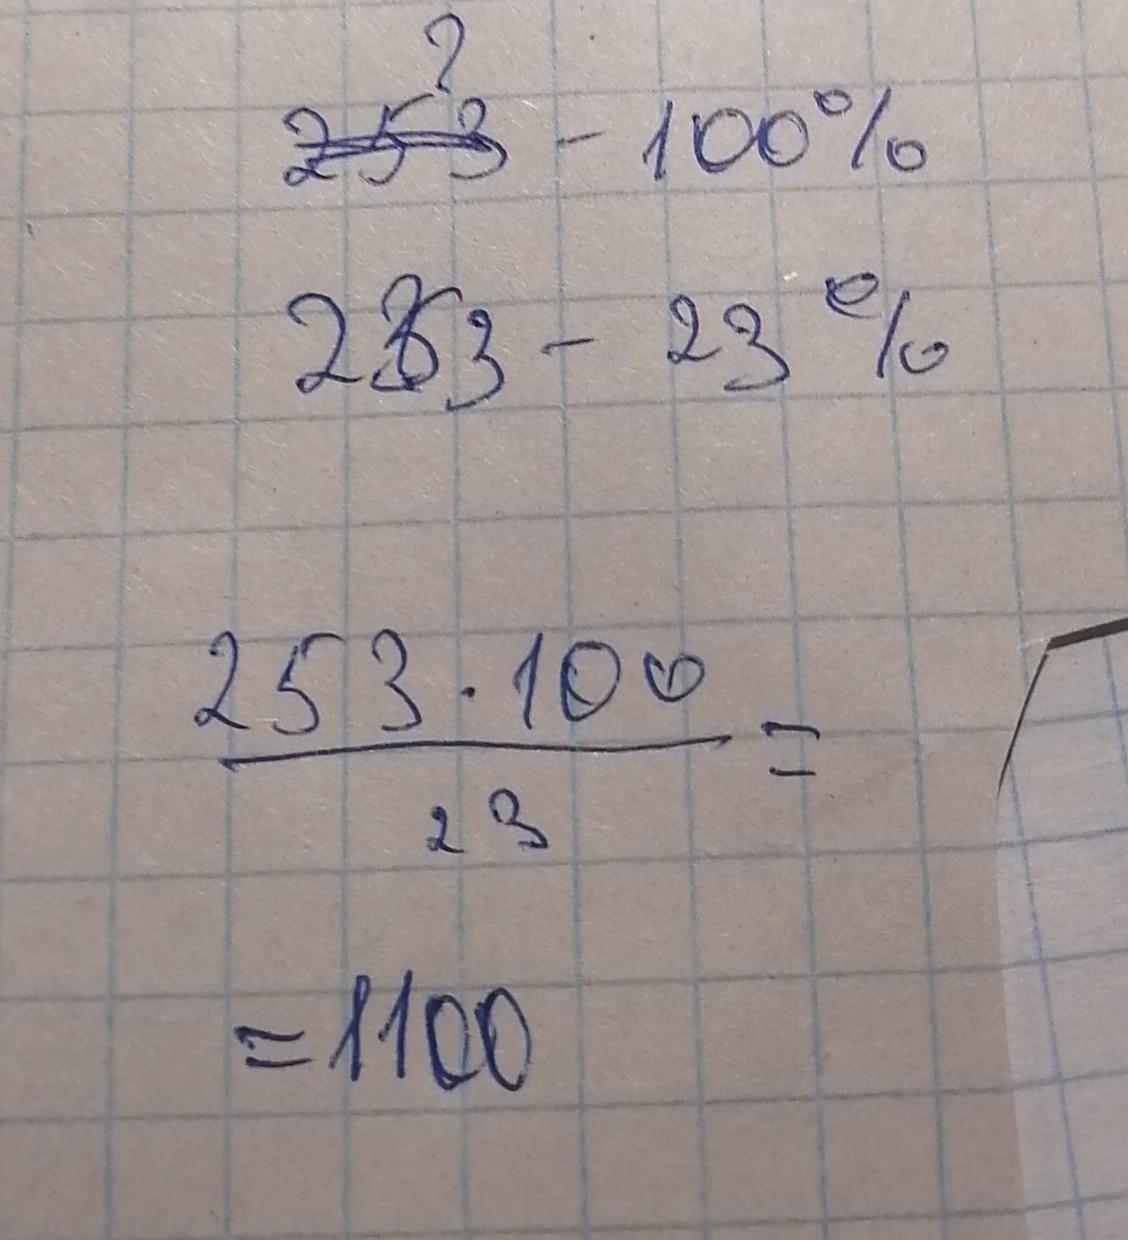 ?
253 - 100%
253 - 23%
253 · 100
23
=
= 1100